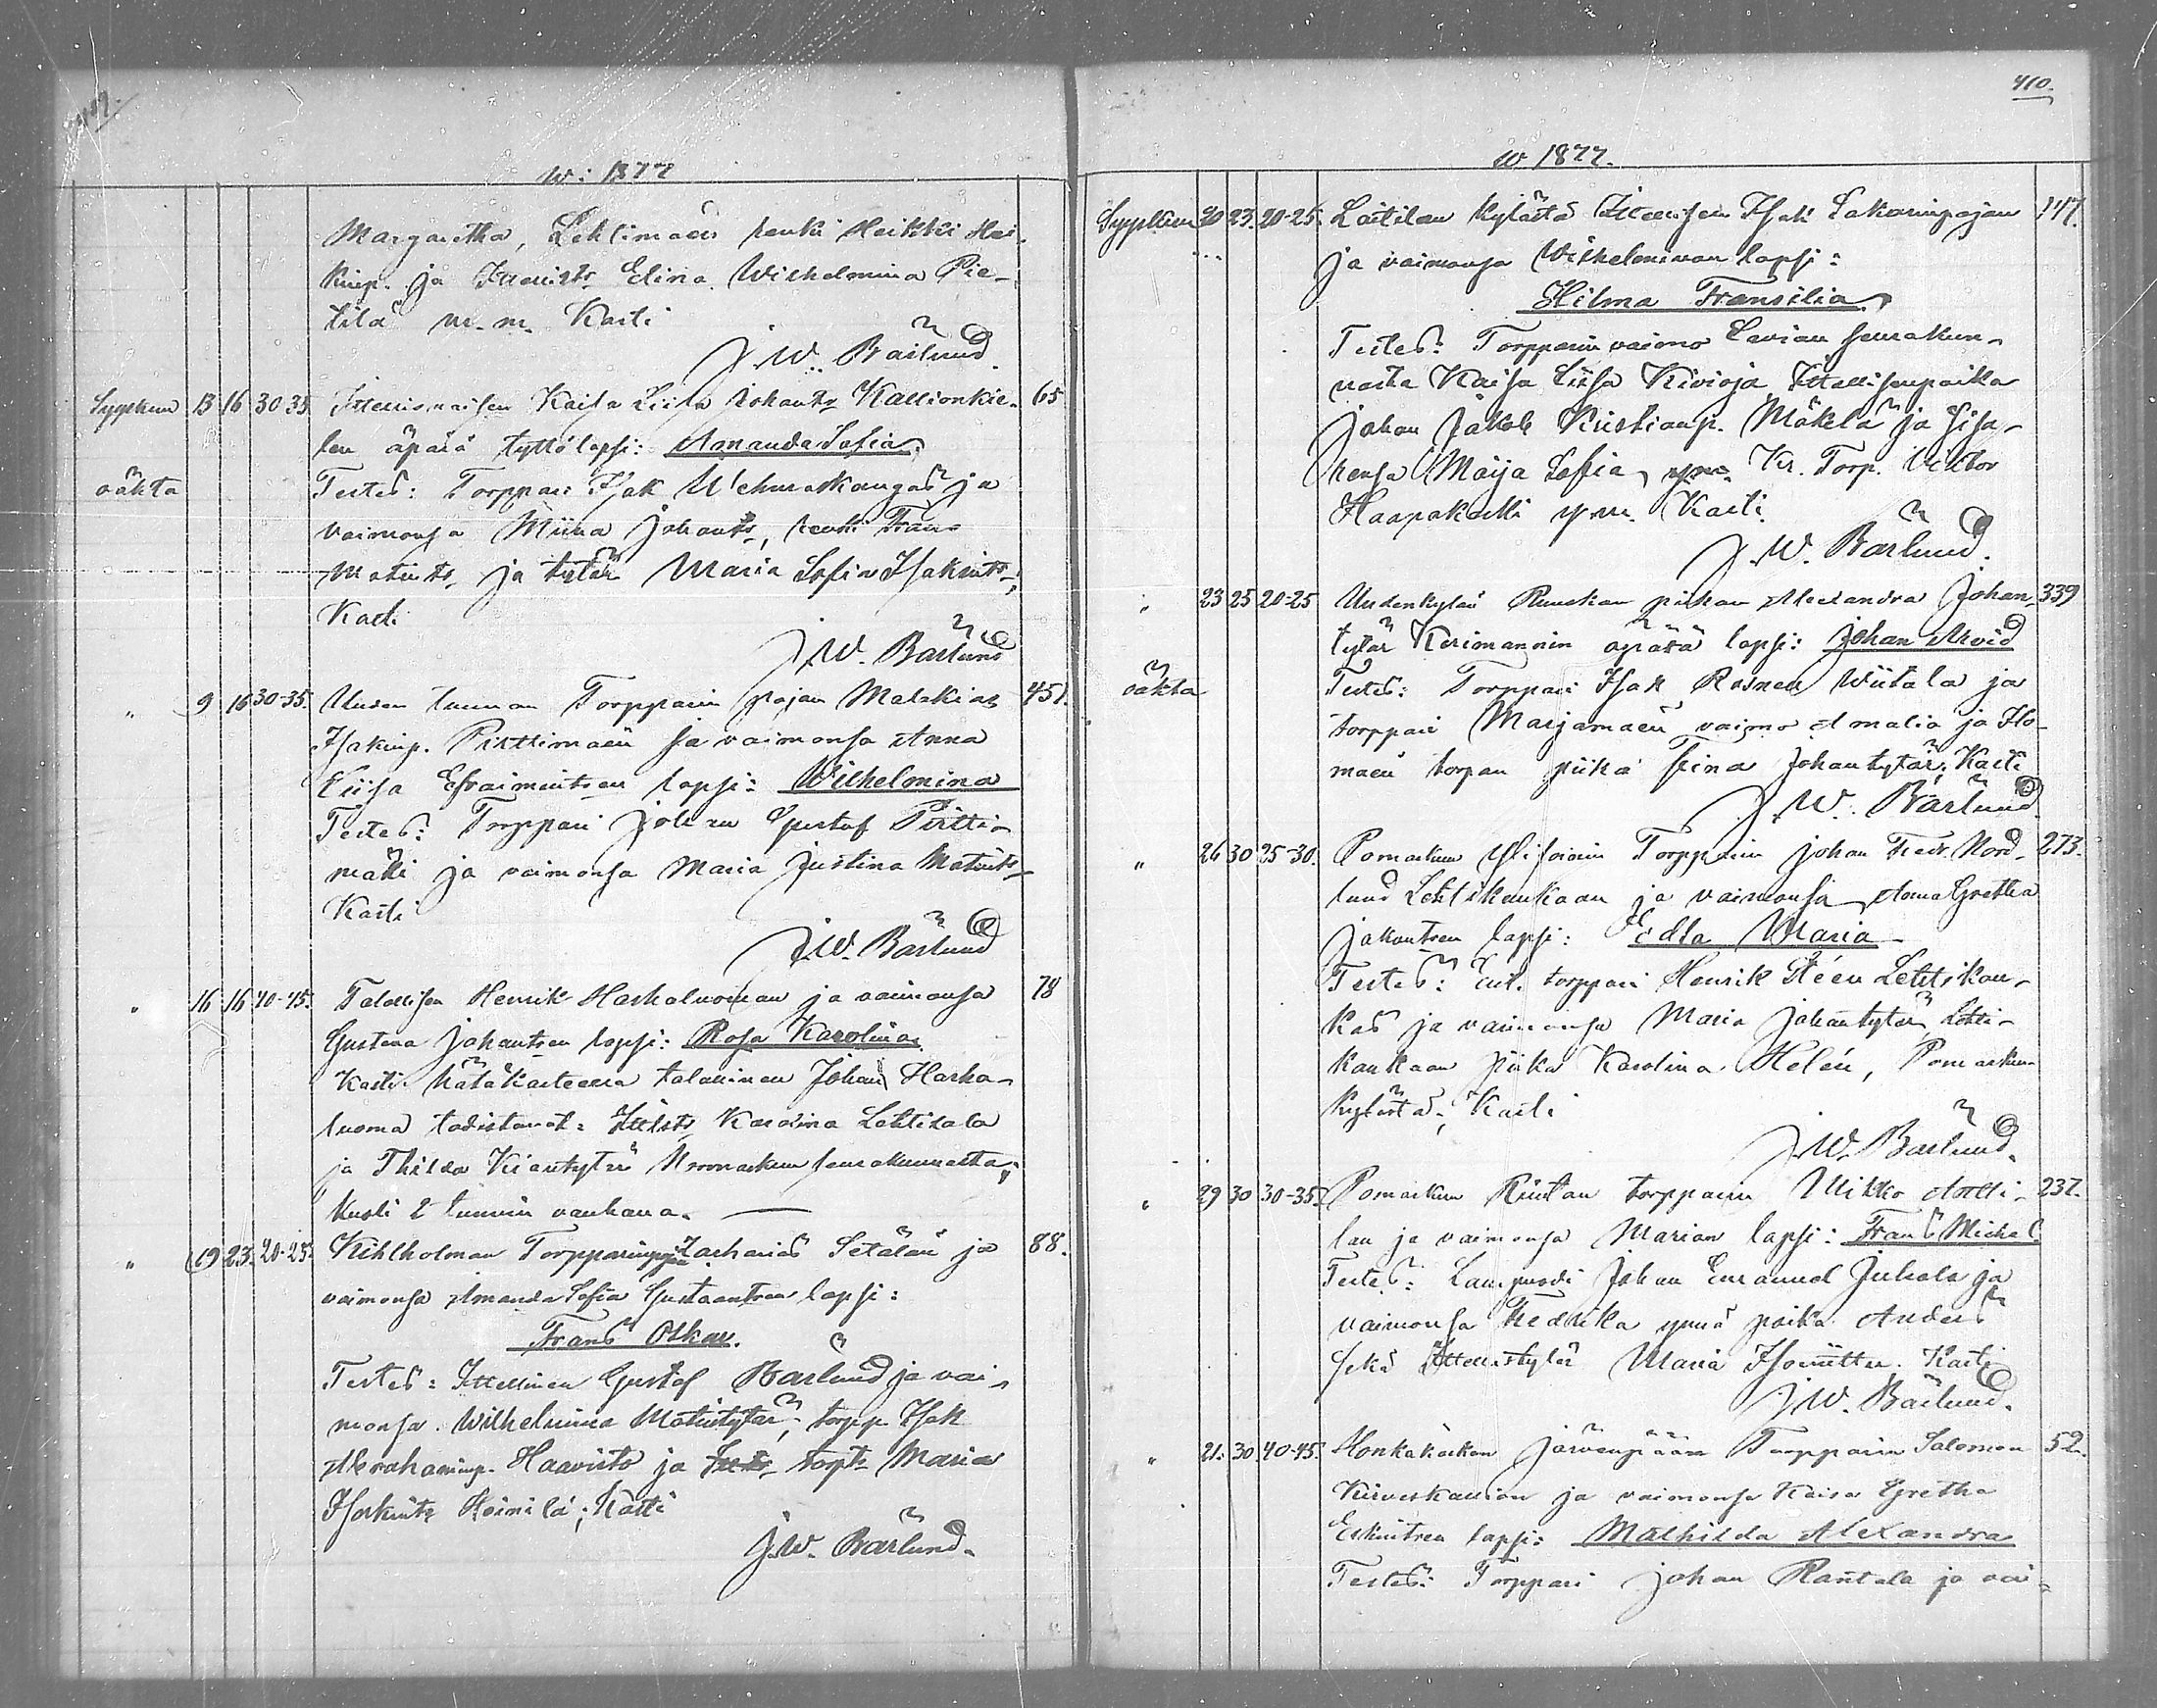 w: 1877
Margaretha, Lehtimäen renki Heikki Hei-
kinp. ja Ittellists Elina Wilhelmina Pie-
tilä m. m. Kasti
J. W. Bärlund.
Syyskuu 13 16 30-35 Ittellisnaisen Kaisa Liisa Johants Kallionkie- 65
len äpärä tyttölapsi: Amanda Sofia.
väkta Testes: Torppari Isak Uchmaskangas ja
vaimonsa Miina Johants, renki Frans
Matints ja tytär Maria Sofia Isakints;
Kasti
J. W. Bärlund
„ 9 16 30-35. Uuden tuvan Torpparin pojan Malakias 451.
Isakinp. Pirttimäen ja vaimonsa Anna
Liisa Efraimintren lapsi: Wilhelmina
Testes: Torppari Johan Gustaf Pirtti-
mäki ja vaimonsa Maria Justina Matints
Kasti
J. W. Bärlund
„ 16 16 40-45. Talollisen Henrik Harhaluoman ja vaimonsa 78
Gustava Johantren lapsi: Rosa Karolina.
Kasti hätäkasteessa talollinen Johan Harha-
luoma todistavat: Ittelsts Karolina Lehtisalo
ja Thilda Kiantytär Noormarkun seurakunnasta;
kuoli 2 tunnin vanhana.
„ 19 23. 20-25. Kihlholman Torpparinpoja Zacharias Setälän ja 88.
vaimonsa Amanda Sofia Gustaantren lapsi:
Frans Oskar.
Testes: Ittellinen Gustaf Bärlund ja vai-
monsa Wilhelmina Matintytär; torpp. Isak
Abrahaminp. Haavisto ja torpts Maria
Isakints Heinilä; Kasti
J. W. Bärlund.
410.
w 1877.
Syyskuu 20 23. 20-25. Laitilan kylästä Ittellisen Isak Sakarinpojan 147.
ja vaimonsa Wilhelminan lapsi:
Hilma Fransilia
Testes: Torpparin vaimo Lavian seurakun-
nasta Kaisa Liisa Kivioja Ittellisenpoika
Johan Jakob Kristianp. Mäkelä ja sisa-
rensa Maija Sofia, Kr. Torp. Viktor
Haapakoski y. m. Kasti.
J. W. Bärlund.
„ 23 25 20-25 Uudenkylän Ruuskan piikan Alexandra Johan- 339
tytär Kerimannin äpärä lapsi: Johan Arvid
väkta Testes: Torppari Isak Rosnell Wiitala ja
torppari Marjamäen vaimo Amalia ja Ilo-
mäen torpan piika Stina Johantytär; Kasti
J. W. Bärlund
„ 26 30 25-30. Pomarkun Ylisoinin Torpparin Johan Fredr. Nord- 273.
lund Lehtikankaan ja vaimonsa Anna Gretha
Jakontren lapsi: Edla Maria
Testes: Ent. torppari Henrik Stéen Lehtikan-
kas ja vaimonsa Maria Johantytär, Lehti-
kankaan piika Karolina Helén, Pomarkun
kylästä; Kasti
J. W. Bärlund.
„ 29 30 30-35. Pomarkun Riistan torpparin Mikko Anttli- 237.
lan ja vaimonsa Marian lapsi: Frans Michel
Testes: Lampuodi Johan Emanuel Juhola ja
vaimonsa Fredrika ynnä poika Anders
sekä Ittellistytär Maria Isoniittu. Kasti
J. W. Bärlund.
„ 21. 30. 40-45. Honkakosken Järvenpään Torpparin Salomon 52.
Kirveskallion ja vaimonsa Kaisa Gretha
Erkintren lapsi: Mathilda Alexandra
Testes: Torppari Johan Rantala ja vai-